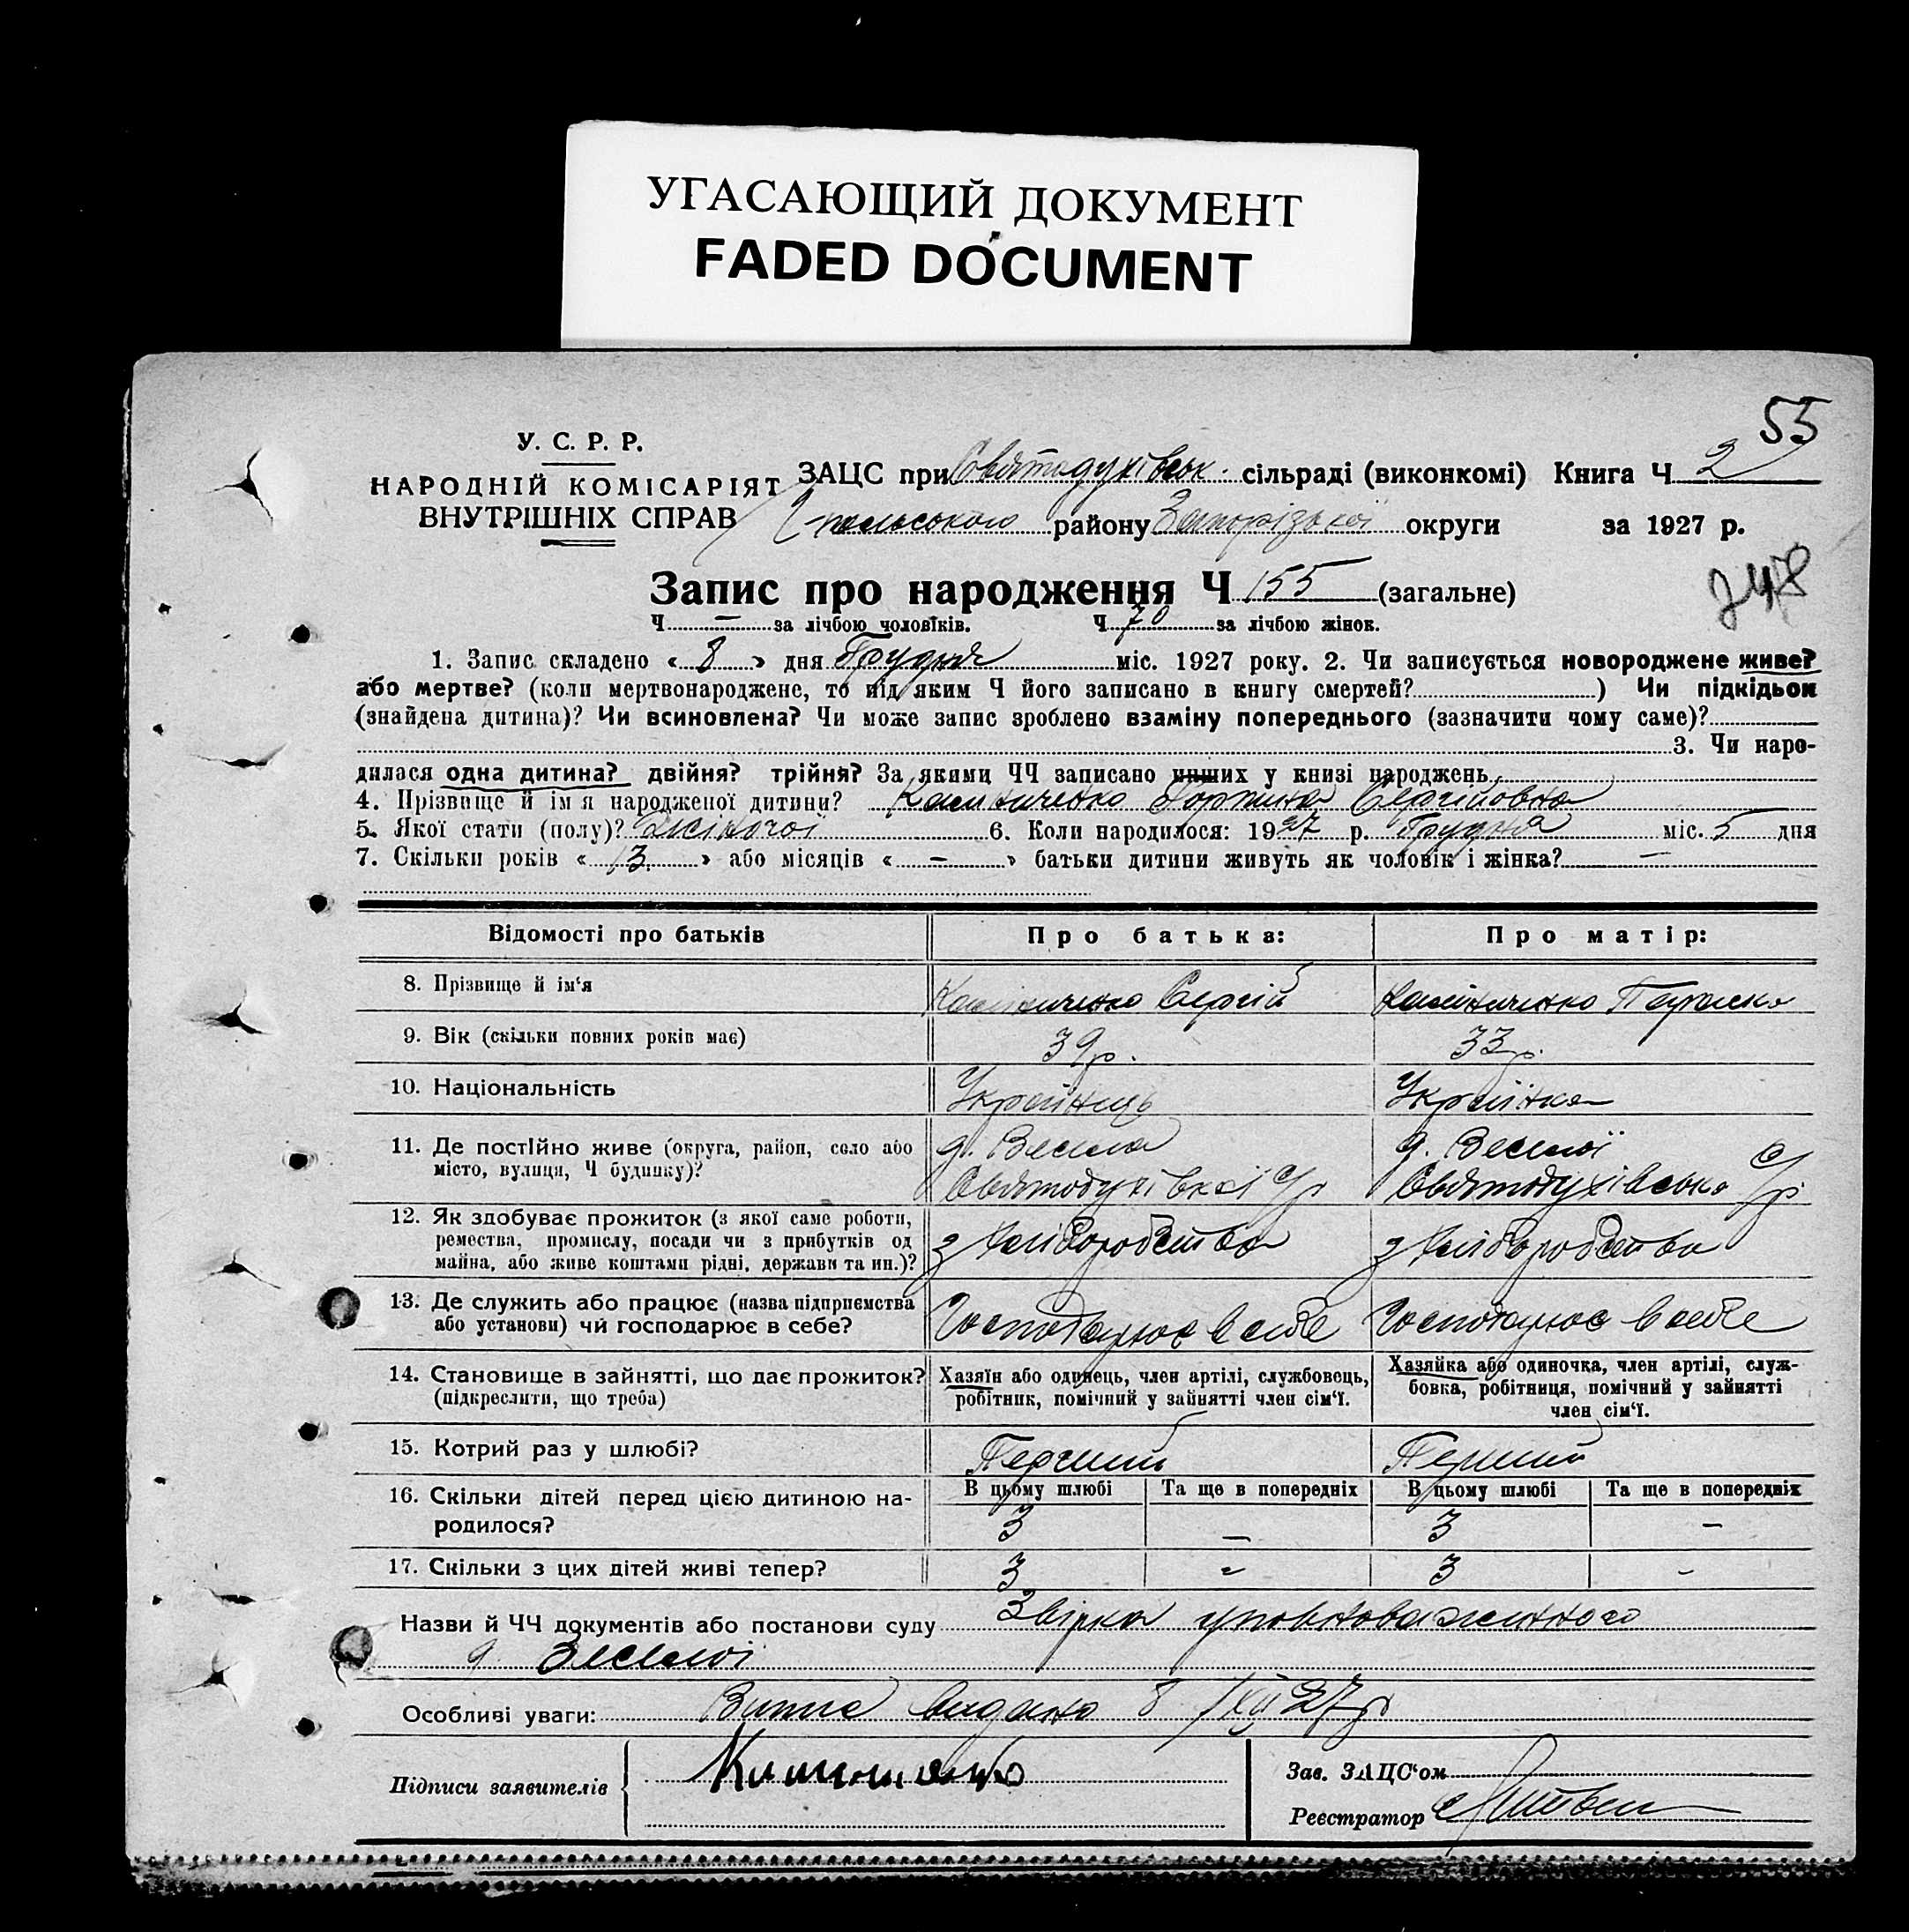 УГАСАЮЩИЙ ДОКУМЕНТ
FADED DOCUMENT
55
У. С. Р. Р.
НАРОДНІЙ КОМІСАРІЯТ
ВНУТРІШНІХ СПРАВ
ЗАЦС при Святодухівськ. сільраді (виконкомі) Книга Ч 2
району Запорізької округи за 1927 р.
248
Запис про народження Ч 155 (загальне)
Ч — за лічбою чоловіків. Ч 70 за лічбою жінок.
1. Запис складено « 8 » дня Грудня міс. 1927 року. 2. Чи записується новороджене живе?
або мертве? (коли мертвонароджене, то під яким Ч його записано в книгу смертей? ) Чи підкідьок
(знайдена дитина)? Чи всиновлена? Чи може запис зроблено взаміну попереднього (зазначити чому саме)?
3. Чи наро-
дилася одна дитина? двійня? трійня? За якими ЧЧ записано инших у книзі народжень
4. Прізвище й ім'я народженої дитини? Сергійовна
5. Якої стати (полу)? Жіночої 6. Коли народилося: 1927 р. Грудня міс. 5 дня
7. Скільки років « 13 » або місяців « — » батьки дитини живуть як чоловік і жінка? —
Відомості про батьків Про батька: Про матір:
8. Прізвище й ім'я Сергій
9. Вік (скільки повних років має) 39 р. 33 р.
10. Національність Українець Українка
11. Де постійно живе (округа, район, село або
місто, вулиця, Ч будинку)?
д. Весела
д. Веселої
12. Як здобуває прожиток (з якої саме роботи,
ремества, промислу, посади чи з прибутків од
майна, або живе коштами рідні, держави та ин.)?
з хліборобства з хліборобства
13. Де служить або працює (назва підприємства
або установи) чи господарює в себе?
Господарює в себе Господарює в себе
14. Становище в зайнятті, що дає прожиток?
(підкреслити, що треба)
Хазяїн або одинець, член артілі, службовець,
робітник, помічний у зайнятті член сім'ї.
Хазяйка або одиночка, член артілі, служ-
бовка, робітниця, помічний у зайнятті
член сім'ї.
15. Котрий раз у шлюбі? Перший Перший
16. Скільки дітей перед цією дитиною на-
родилося?
В цьому шлюбі Та ще в попередніх В цьому шлюбі Та ще в попередніх
3 — 3 —
17. Скільки з цих дітей живі тепер? 3 - 3 -
Назви й ЧЧ документів або постанови суду Звірка уповноваженного
д. Веселої
Особливі уваги: Витяг видано 8/XII 27 р
Підписи заявителів
Зав. ЗАЦС'ом
Реєстратор